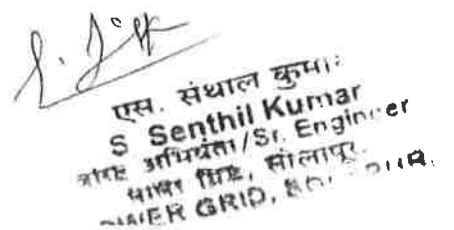 एस. संथाल कुमार
S Senthil Kumar
वरिष्ठ अभियंता/Sr. Engineer
पावर ग्रिड, सोलापूर.
POWER GRID,